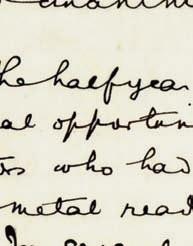 the halfyear
al opportun
ors who had
metal read